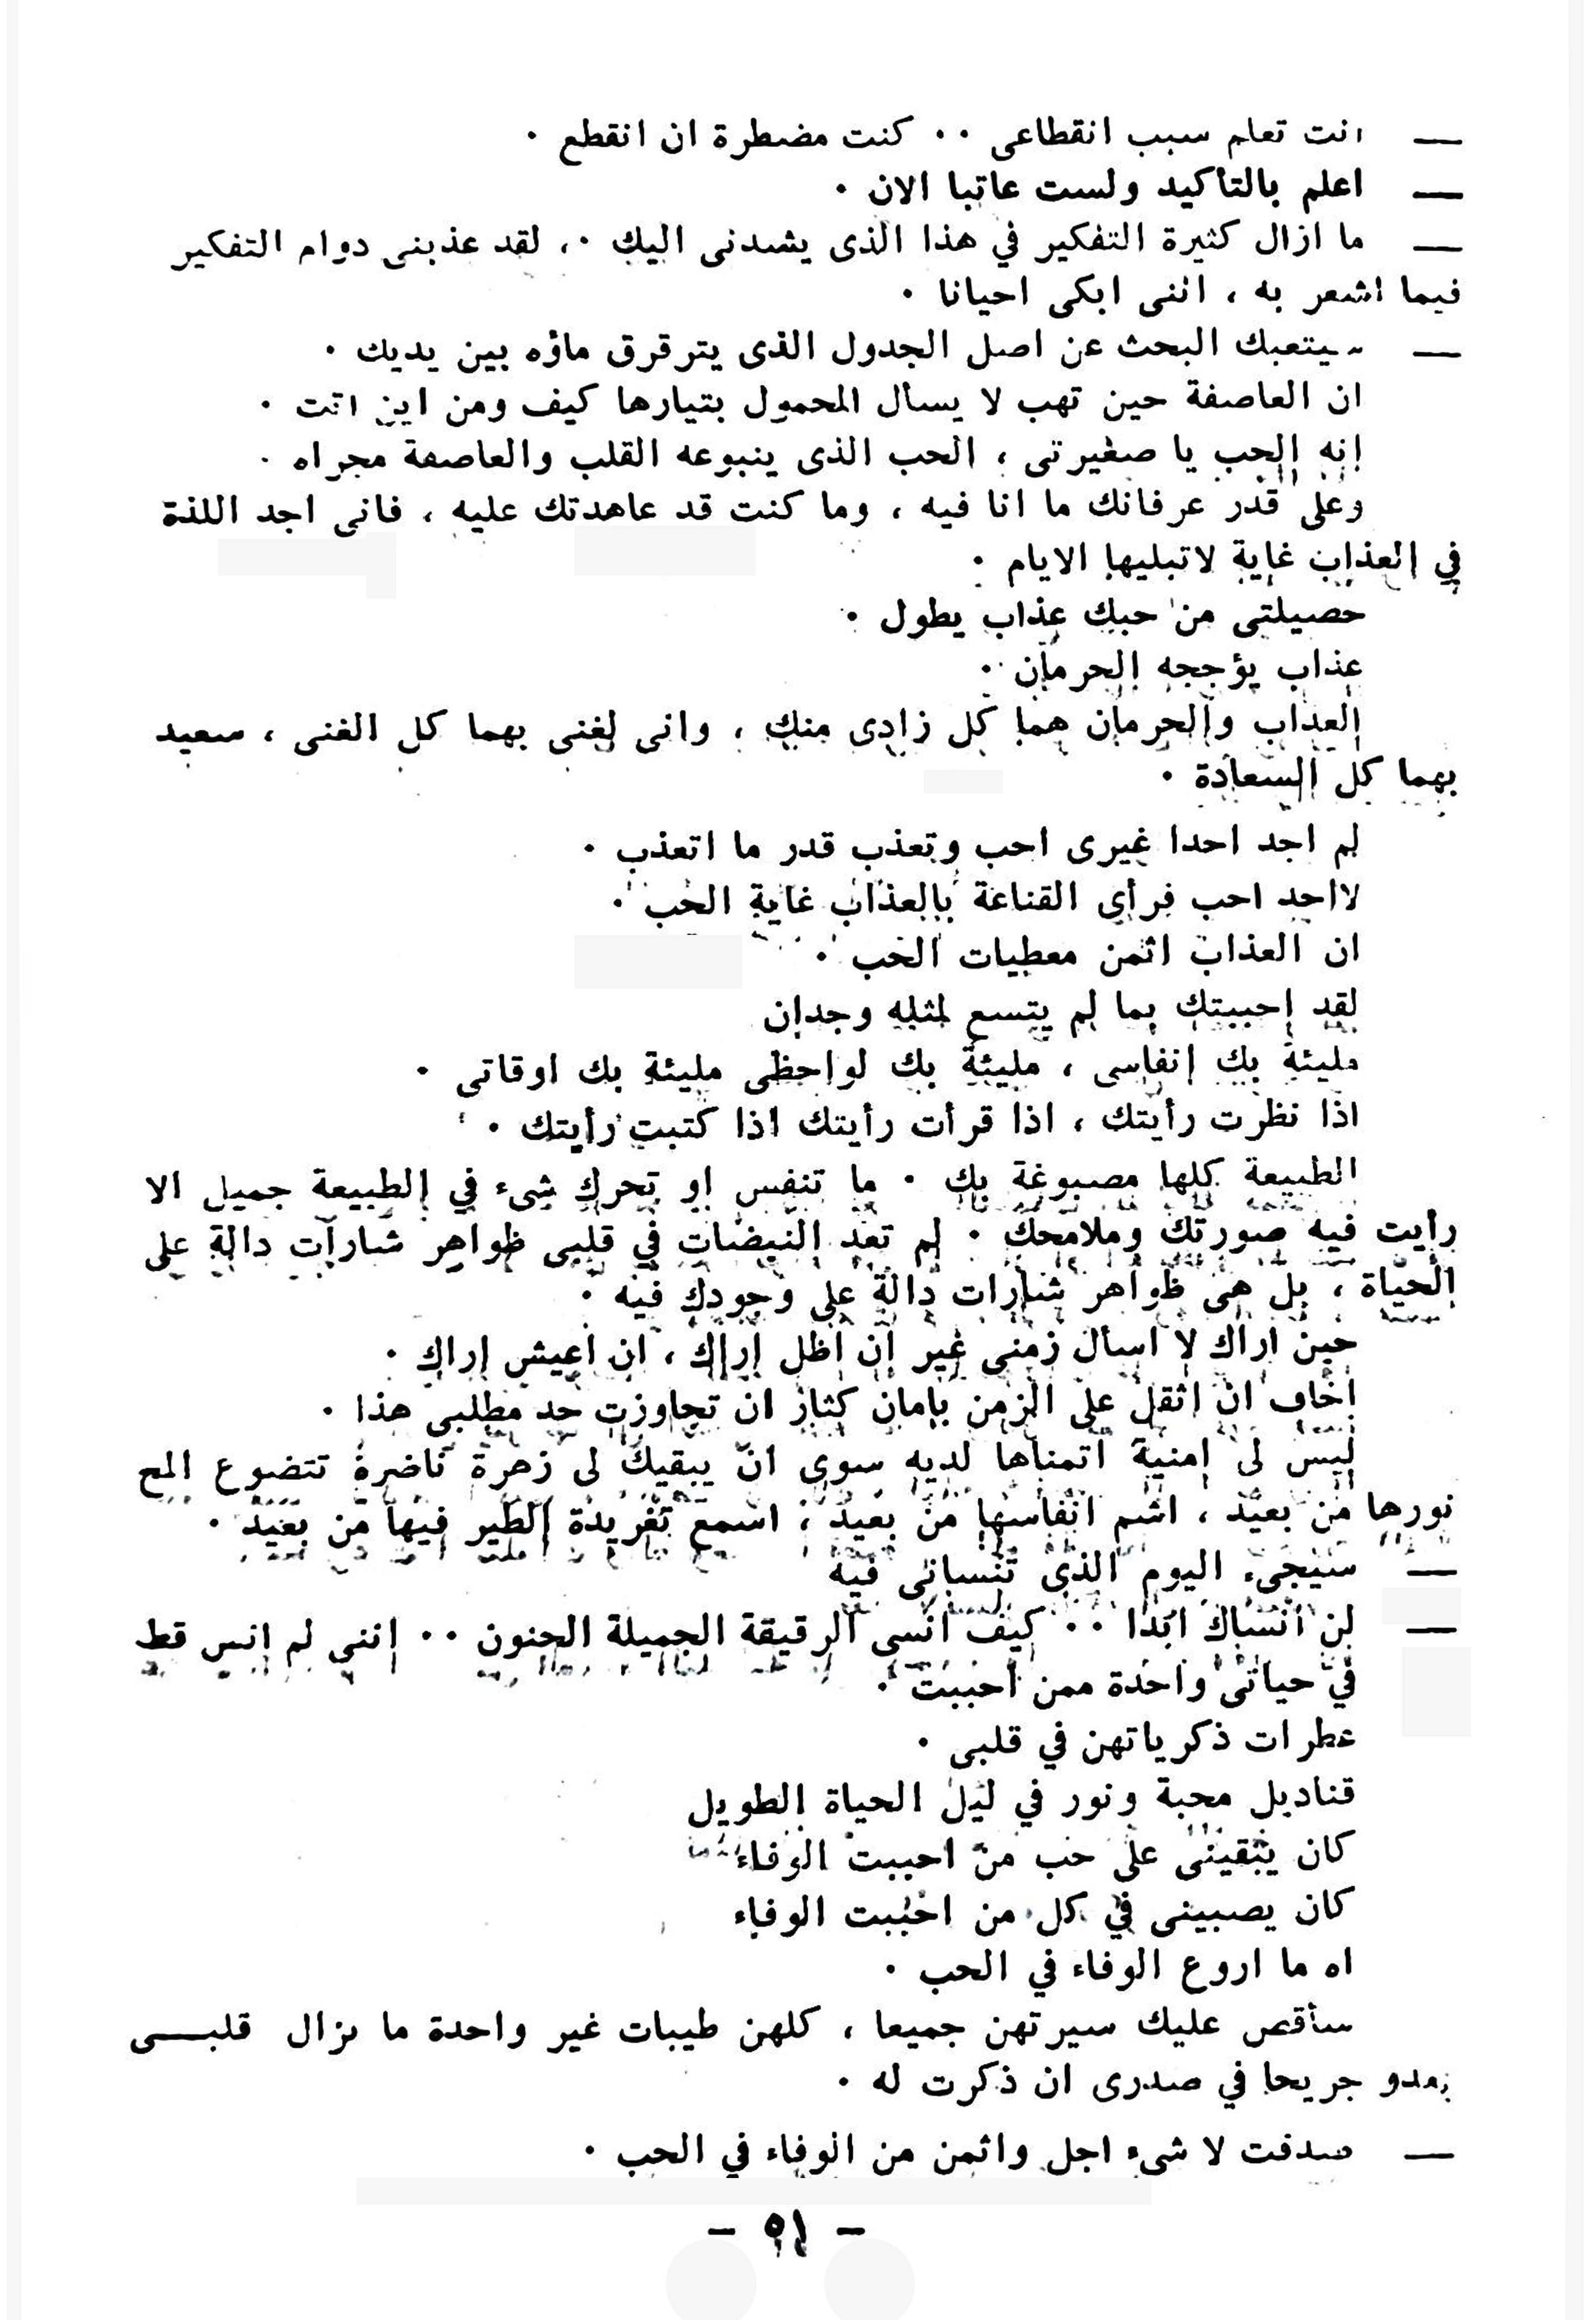 — انت تعلم سبب انقطاعى ٠٠ كنت مضطرة ان انقطع ٠
— اعلم بالتأكيد ولست عاتبا الان ٠
— ما ازال كثيرة التفكير في هذا الذى يشدنى اليك ٠، لقد عذبنى دوام التفكير
فيما اشعر به ، اننى ابكى احيانا ٠
— سيتعبك البحث عن اصل الجدول الذى يترقرق ماؤه بين يديك ٠
ان العاصفة حين تهب لا يسأل المحمول بتيارها كيف ومن اين اتت ٠
إنه الحب يا صغيرتى ، الحب الذى ينبوعه القلب والعاصفة مجراه ٠
وعلى قدر عرفانك ما انا فيه ، وما كنت قد عاهدتك عليه ، فانى اجد اللذة
في العذاب غاية لاتبليها الايام ٠
حصيلتى من حبك عذاب يطول ٠
عذاب يؤججه الحرمان ٠
العذاب والحرمان هما كل زادى منك ، وانى لغنى بهما كل الغنى ، سعيد
بهما كل السعادة ٠
لم اجد احدا غيرى احب وتعذب قدر ما اتعذب ٠
لااحد احب فرأى القناعة بالعذاب غاية الحب ٠
ان العذاب اثمن معطيات الحب ٠
لقد احببتك بما لم يتسع لمثله وجدان
مليئة بك انفاسى ، مليئة بك لواحظى مليئة بك اوقاتى ٠
اذا نظرت رأيتك ، اذا قرأت رأيتك اذا كتبت رأيتك ٠
الطبيعة كلها مصبوغة بك ٠ ما تنفس او تحرك شىء في الطبيعة جميل الا
رأيت فيه صورتك وملامحك ٠ لم تعد النبضات في قلبى ظواهر شارات دالة على
الحياة ، بل هى ظواهر شارات دالة على وجودك فيه ٠
حين اراك لا اسأل زمنى غير ان اظل اراك ، ان اعيش اراك ٠
اخاف ان اثقل على الزمن بامان كثار ان تجاوزت حد مطلبى هذا ٠
ليس لى امنية اتمناها لديه سوى ان يبقيك لى زهرة ناضرة تتضوع المح
نورها من بعيد ، اشم انفاسها من بعيد ، اسمع تغريدة الطير فيها من بعيد ٠
— سيجىء اليوم الذى تنسانى فيه
— لن انساك ابدا ٠٠ كيف انسى الرقيقة الجميلة الحنون ٠٠ إننى لم انس قط
في حياتى واحدة ممن احببت ٠
عطرات ذكرياتهن في قلبى ٠
قناديل محبة ونور في ليل الحياة الطويل
كان يبقينى على حب من احببت الوفاء
كان يصبينى في كل من احببت الوفاء
اه ما اروع الوفاء في الحب ٠
سأقص عليك سيرتهن جميعا ، كلهن طيبات غير واحدة ما يزال قلبـــى
يعدو جريحا في صدرى ان ذكرت له ٠
— صدقت لا شىء اجل واثمن من الوفاء في الحب ٠